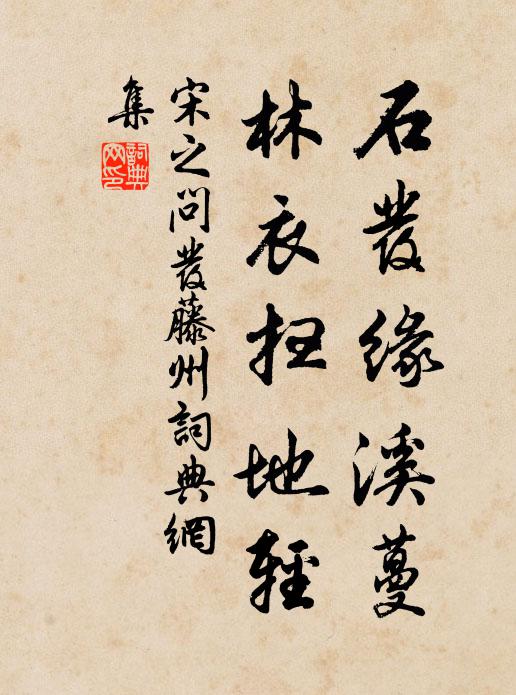 石發緣溪蔓
林衣扫地輕
宋之问發藤州詞典網
集
詞典
网印